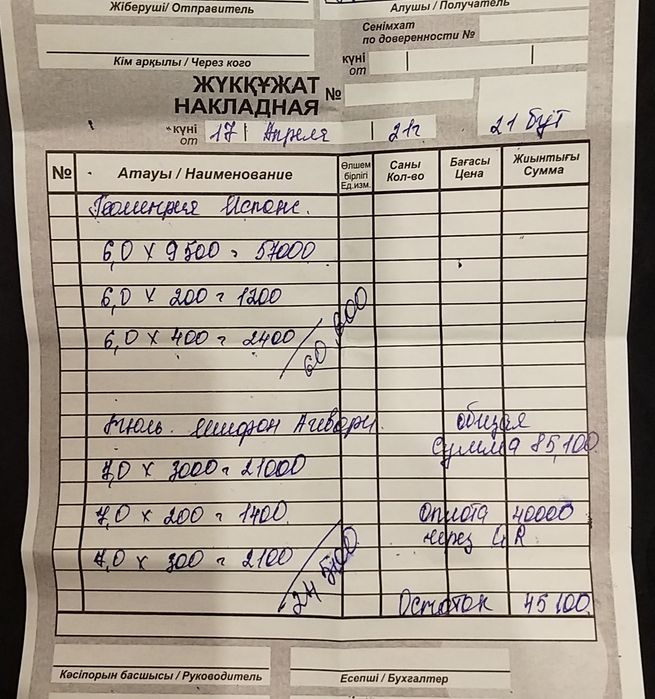 Жіберуші/ Отправитель
Алушы / Получатель
Сенімхат
по доверенности №
Кім арқылы / Через кого
күні
от
ЖҮКҚҰЖАТ
НАКЛАДНАЯ №
күні
от
17 Апреля 21г
21 бут
№
Атауы / Наименование
Өлшем
бірлігі
Ед.изм.
Саны
Кол-во
Бағасы
Цена
Жиынтығы
Сумма
Геометрия Испанс.
6,0 x 9500 = 57000
6,0 x 200 = 1200
6,0 x 400 = 2400
60,600
Тюль. шифон
общая
сумма 85,100
7,0 x 3000 = 21000
7,0 x 200 = 1400.
Оплота 40000
через QR
7,0 x 300 = 2100
24,500
Остаток 45100.
Кәсіпорын басшысы / Руководитель
Есепші / Бухгалтер